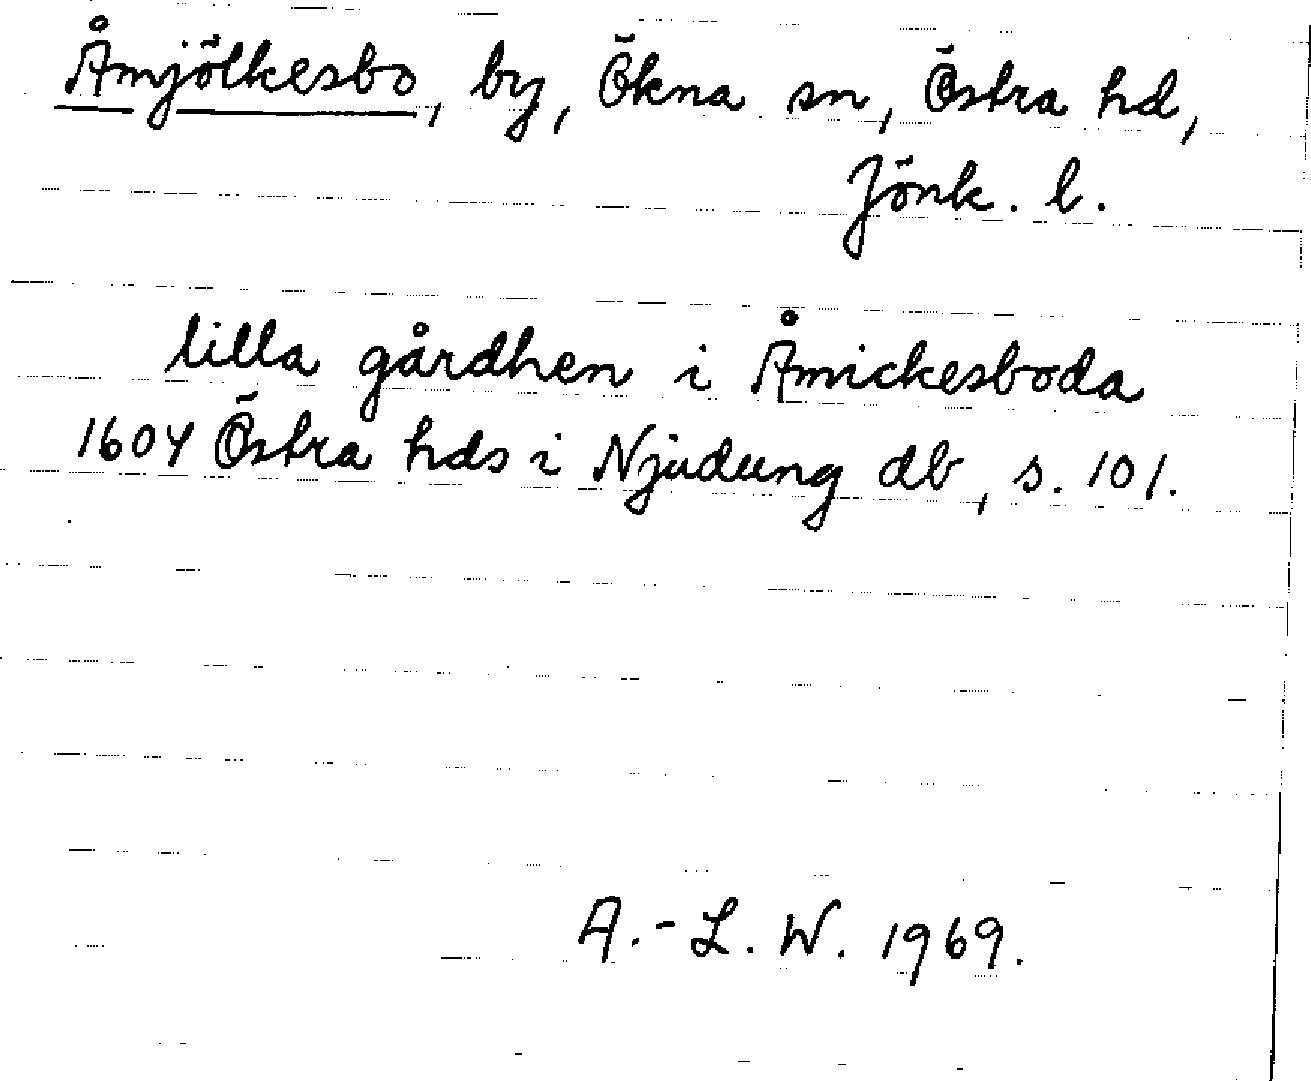 Åmjölkesbo, by, Ökna sn, Östra hd,
Jönk. l.
lilla gårdhen i Åmickesboda
1604 Östra hds i Njudung db, s. 101.
A.-L. W. 1969.